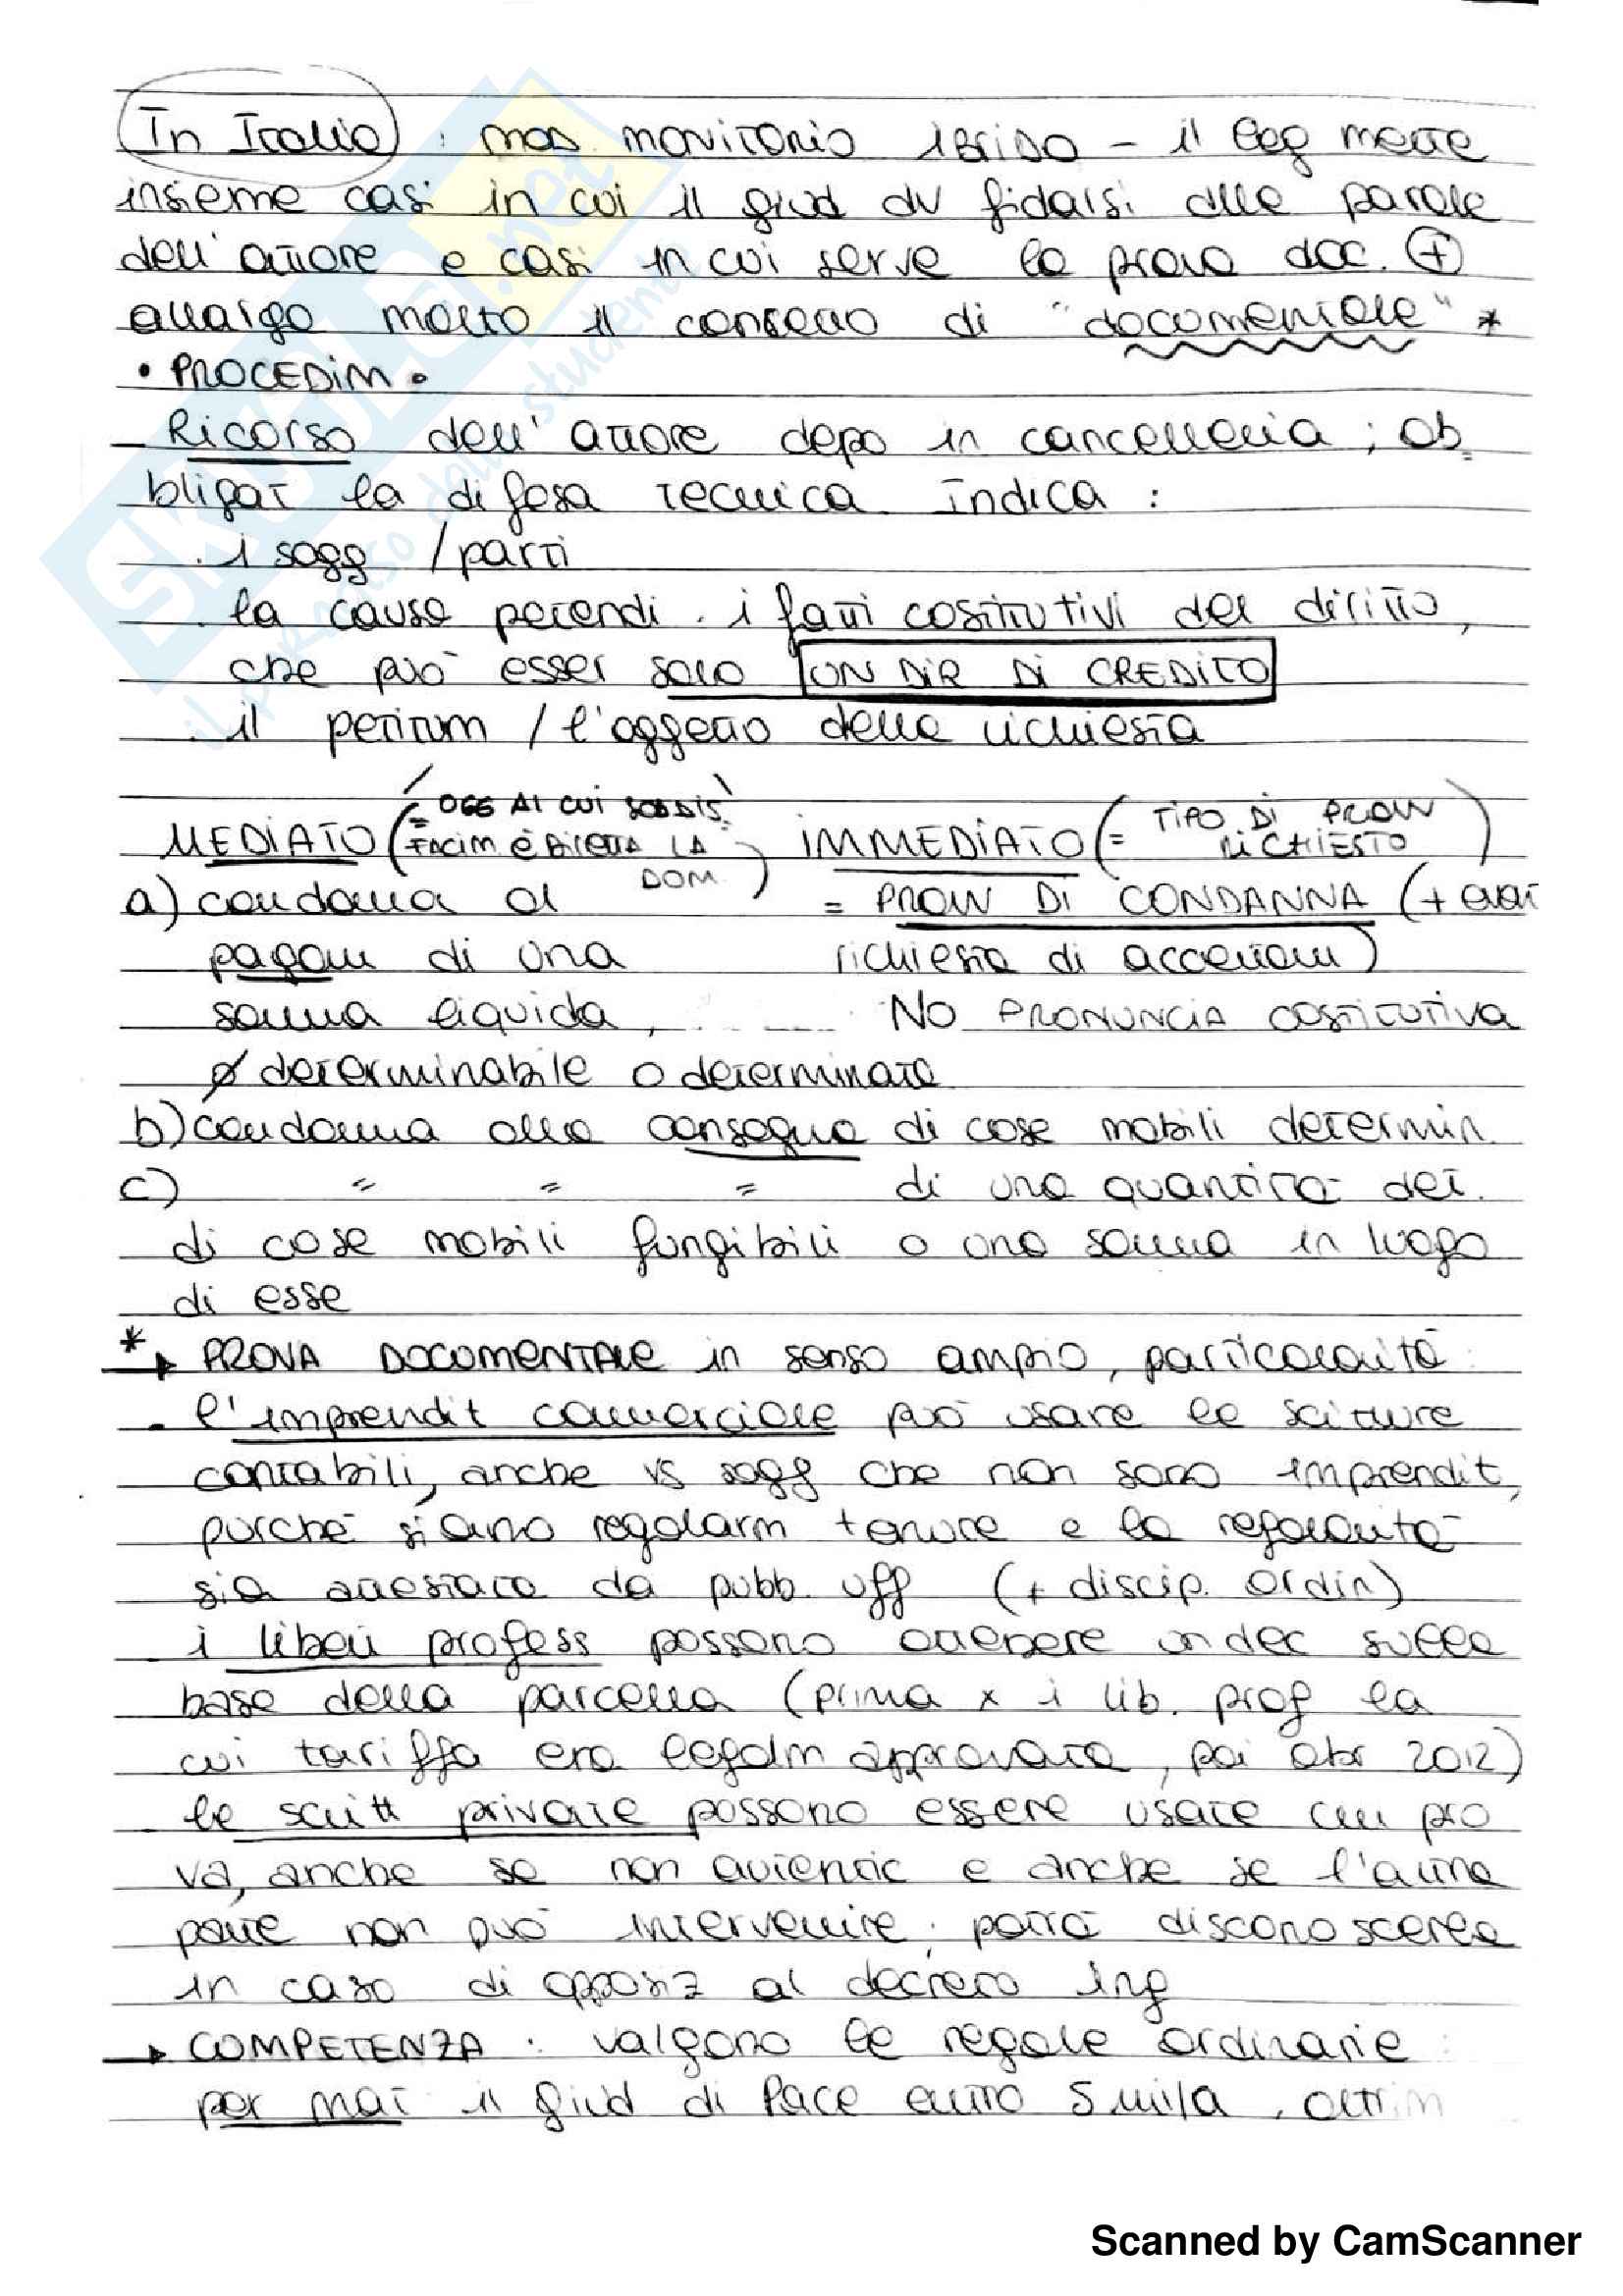 In Italia : mod. monitorio ibrido - il leg mette
insieme casi in cui il giud dv fidarsi delle parole
dell'attore e casi in cui serve la prova doc. +
allarga molto il concetto di "documentale" *
• PROCEDIM •
Ricorso dell'attore depo in cancelleria ; ob
bligat la difesa tecnica. Indica :
. i sogg / parti
. la causa petendi . i fatti costitutivi del diritto,
che può esser solo UN DIR DI CREDITO
. il petitum / l'oggetto della richiesta
MEDIATO (= OGG AL CUI SODDIS
FACIM È DIRETTA LA
DOM.) IMMEDIATO (= TIPO DI PROVV
RICHIESTO)
a) condanna al = PROVV DI CONDANNA (+ evat
pagam di una richiesta di accertam)
somma liquida, NO PRONUNCIA COSTITUTIVA
determinabile o determinata
b) condanna alla consegna di cose mobili determin.
c) " " " di una quantità det.
di cose mobili fungibili o una somma in luogo
di esse
* → PROVA DOCUMENTALE in senso ampio, particolarità :
. l'imprendit commerciale può usare le scritture
contabili, anche vs sogg che non sono imprendit,
purché siano regolarm tenute e la regolarità
sia attestata da pubb. uff (+ discip. ordin)
. i liberi profess possono ottenere un dec sulla
base della parcella (prima x i lib. prof la
cui tariffa era legalm approvata, poi abr 2012)
. le scritt private possono essere usate cm pro
va, anche se non autentic e anche se l'altra
parte non può intervenire ; potrà disconoscerla
in caso di opposiz al decreto ing
→ COMPETENZA : valgono le regole ordinarie :
per mat il giud di Pace entro 5 mila , altrim
SKUOLA.net
il paradiso dello studente
Scanned by CamScanner